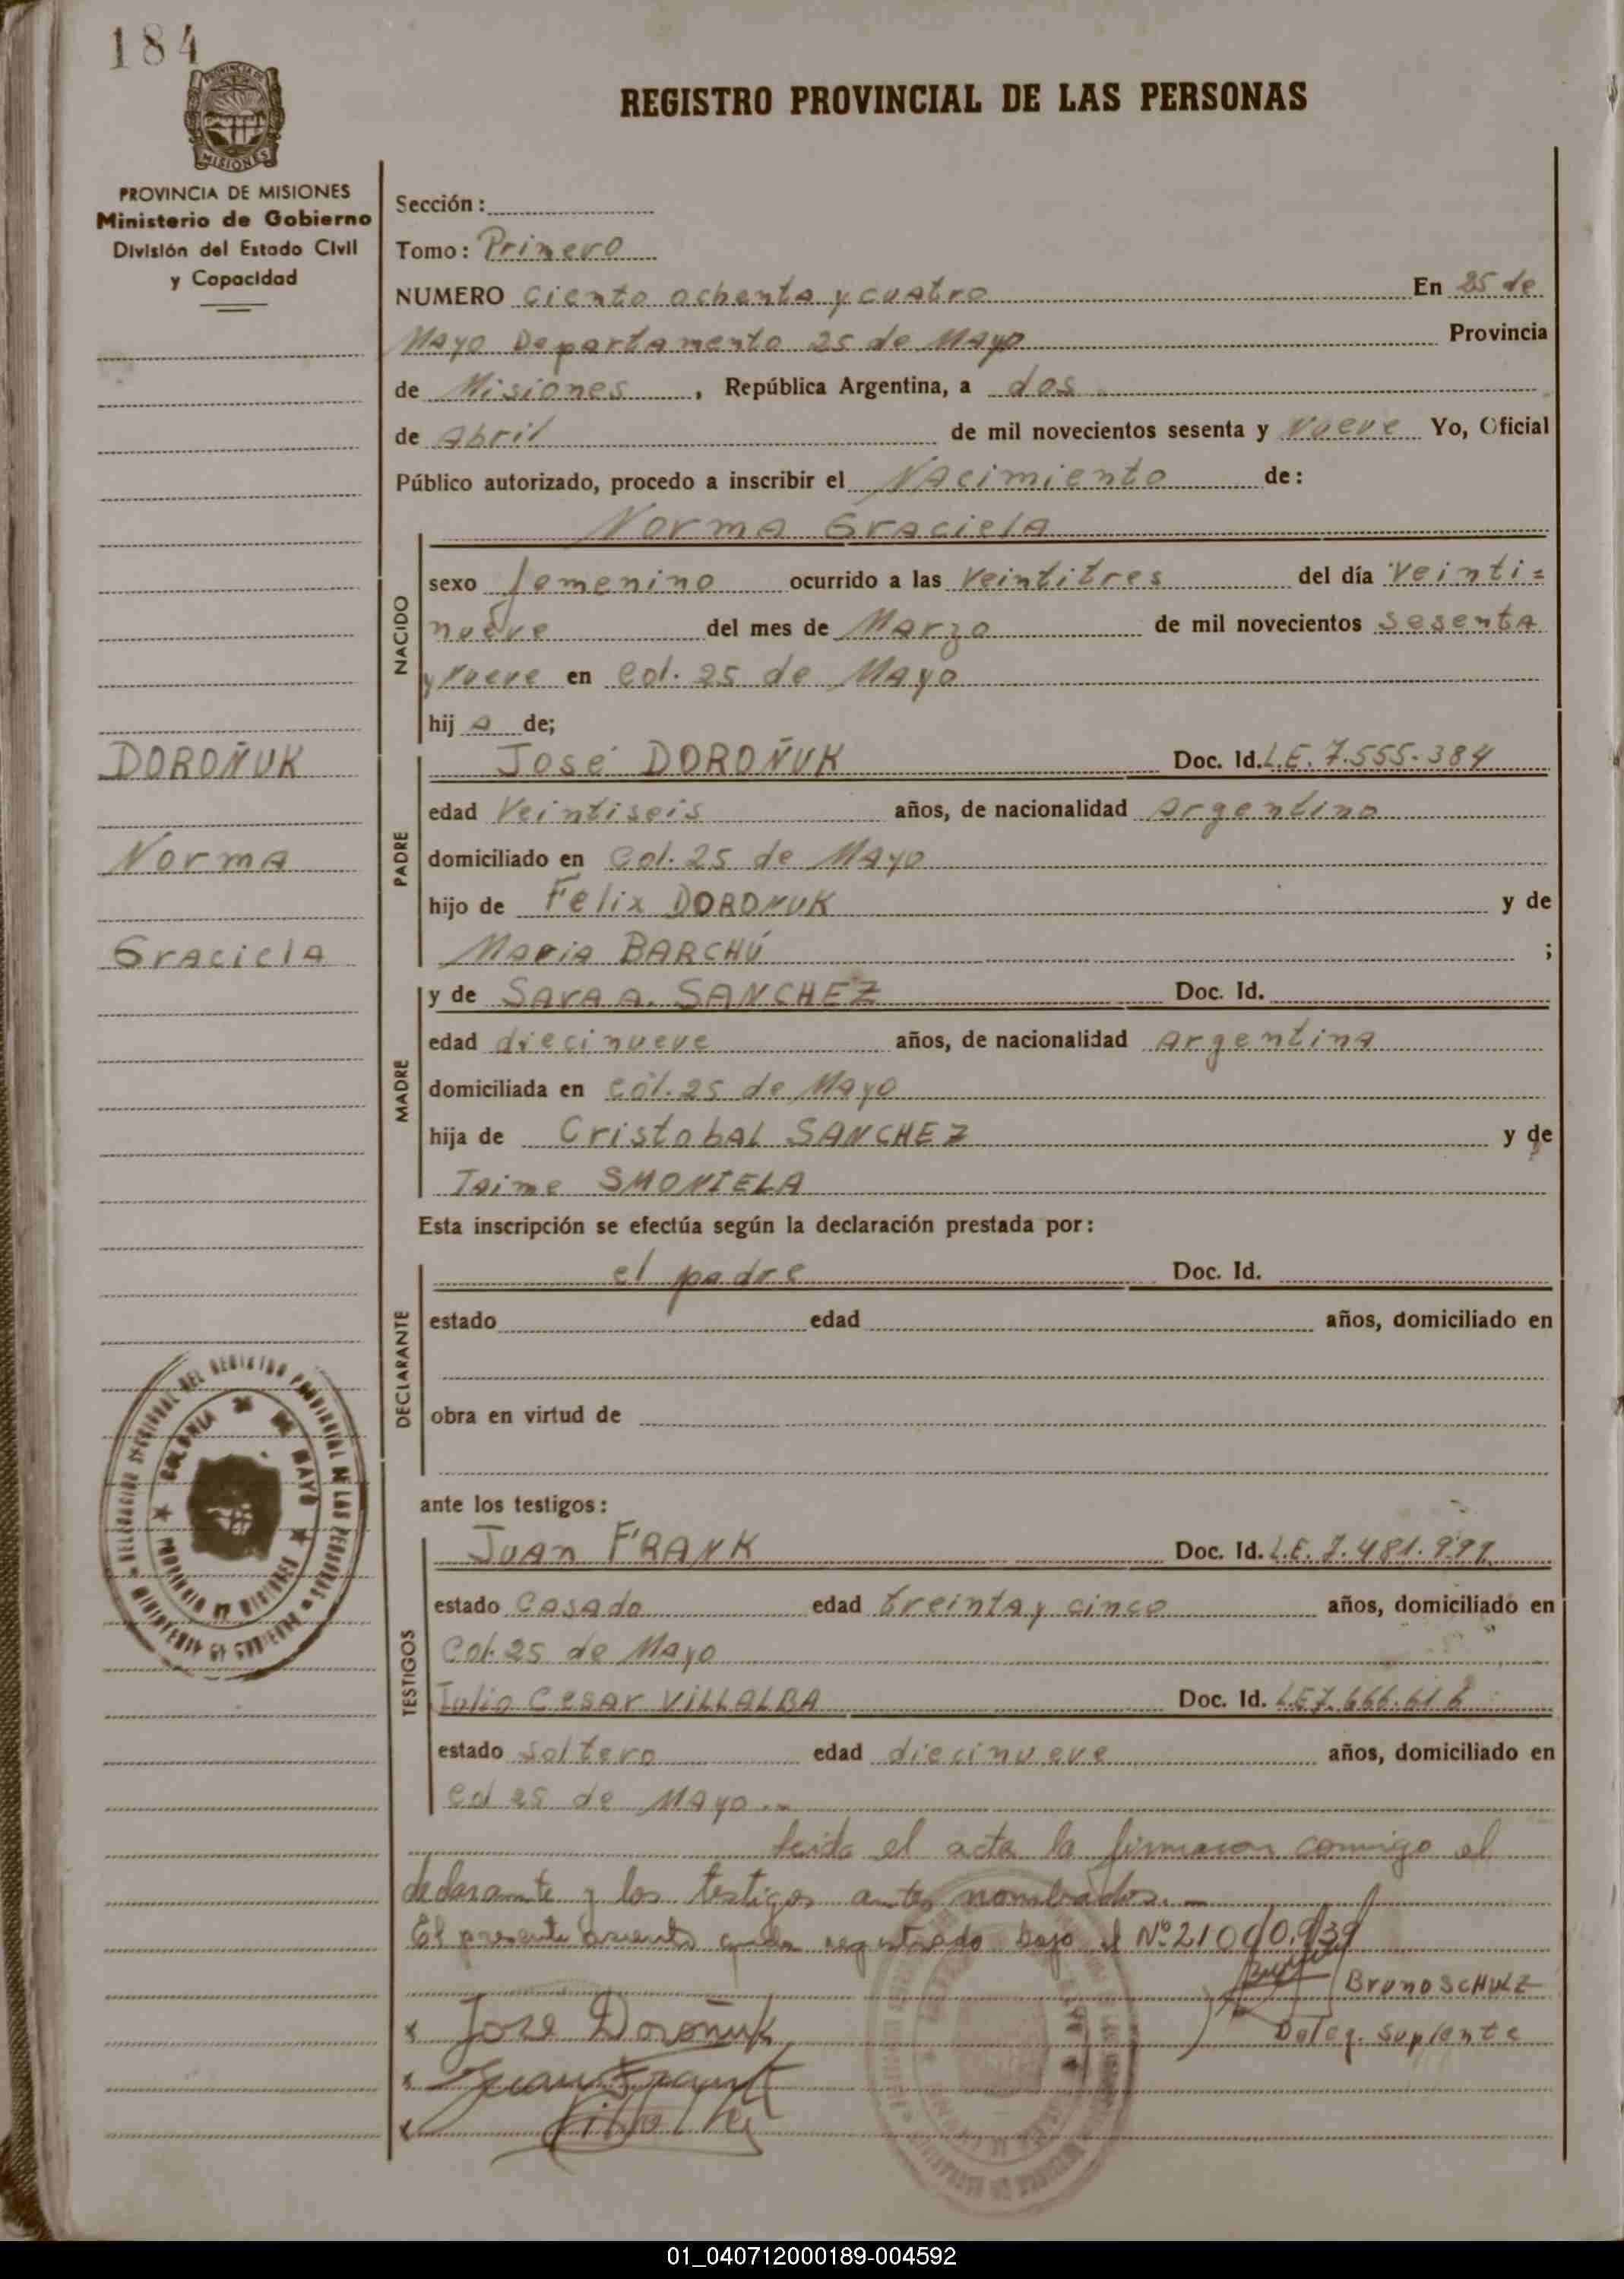 184
PROVINCIA DE MISIONES
Ministerio de Gobierno
División del Estado Civil
y Capacidad
REGISTRO PROVINCIAL DE LAS PERSONAS
Sección:
Tomo: Primero
NUMERO Ciento ochenta y cuatro En 25 de
Mayo Departamento 25 de Mayo Provincia
de Misiones, República Argentina, a dos
de Abril de mil novecientos sesenta y Nueve Yo, Oficial
Público autorizado, procedo a inscribir el Nacimiento de:
Norma Graciela
NACIDO
sexo femenino ocurrido a las Veintitres del día Veinti=
nueve del mes de Marzo de mil novecientos sesenta
y Nueve en Col. 25 de Mayo
hij a de;
DOROÑUK
Norma
Graciela
PADRE
José DOROÑUK Doc. Id. L.E. 7.555.384
edad Veintiseis años, de nacionalidad Argentino
domiciliado en Col. 25 de Mayo
hijo de Felix DOROÑUK y de
Maria BARCHÚ ;
MADRE
y de Sara A. SANCHEZ Doc. Id.
edad diecinueve años, de nacionalidad Argentina
domiciliada en Col. 25 de Mayo
hija de Cristobal SANCHEZ y de
Jaime SMONIELA
Esta inscripción se efectúa según la declaración prestada por:
DECLARANTE
el padre Doc. Id.
estado edad años, domiciliado en
obra en virtud de
ante los testigos:
TESTIGOS
Juan FRANK Doc. Id. L.E. 7.481.
estado Casado edad treinta y cinco años, domiciliado en
Col. 25 de Mayo
Julio Cesar VILLALBA Doc. Id. L.E 7.666.
estado Soltero edad diecinueve años, domiciliado en
Col 25 de Mayo.
leida el acta la firmaron conmigo el
declarante y los testigos antes nombrados.-
El presente asiento queda registrado bajo el Nº
Bruno SCHULZ
Deleg. Suplente
x Jose Doroñuk
x Juan Frank
x
DELEGACION SECCIONAL DEL REGISTRO PROVINCIAL DE LAS PERSONAS
COLONIA 25 DE MAYO
PROVINCIA DE MISIONES
MINISTERIO DE GOBIERNO
01_040712000189-004592